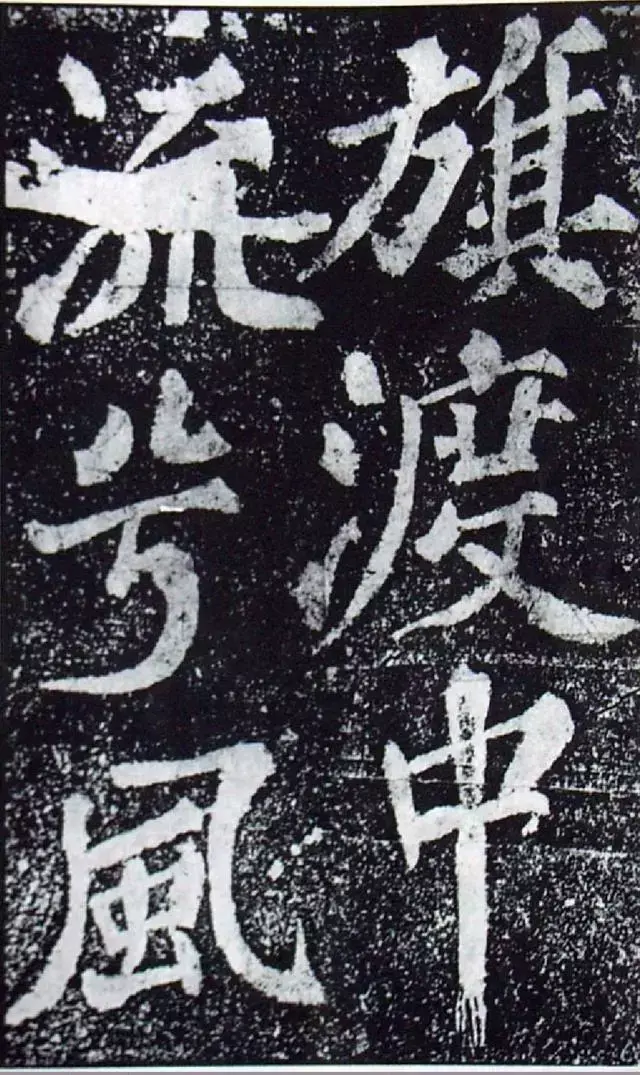 旗渡中
流兮風